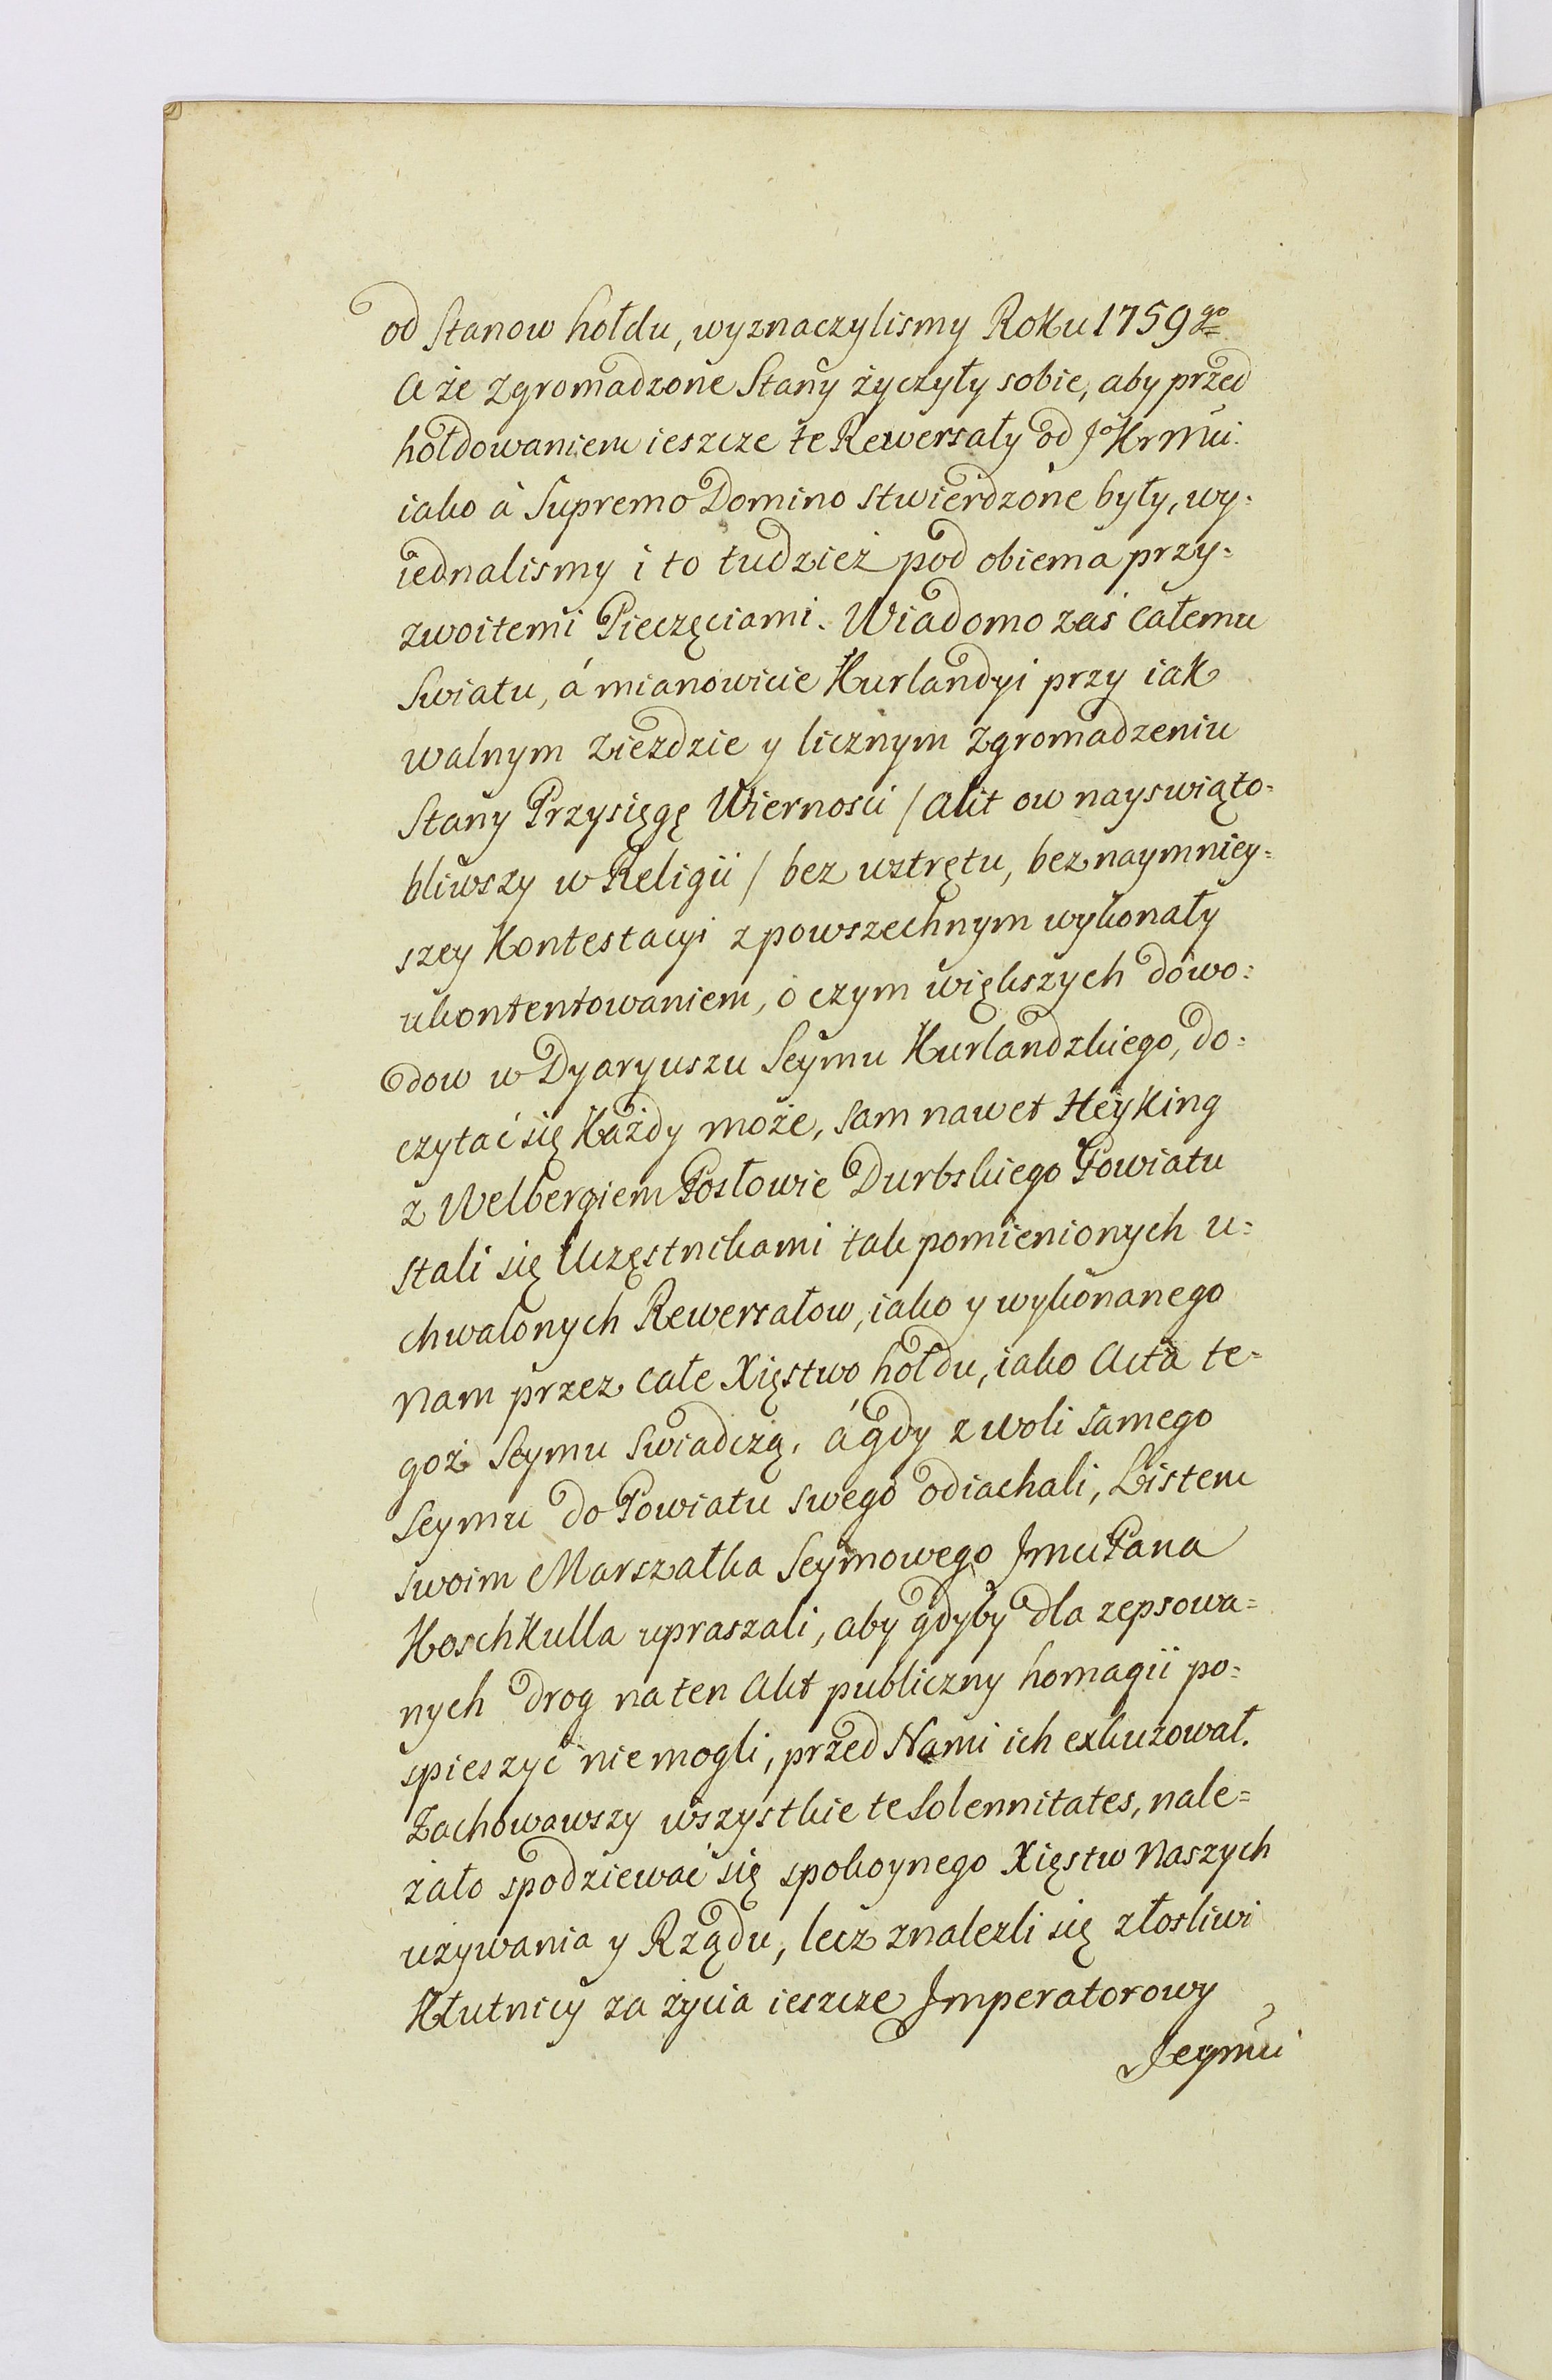 od Stanow hołdu, wyznaczylismy Roku 1759go
A że zgromadzone Stany życzyły sobie, aby przed
hołdowaniem ieszcze te Rewersały od Jo Kr Mci.
iako à Supremo Domino stwierdzone były, wy=
iednalismy i to tudzież pod obiema przy=
zwoitemi Pieczęciami. Wiadomo zaś całemu
Swiatu, á mianowicie Kurlandyi przy iak
walnym ziezdzie y licznym zgromadzeniu
Stany Przysięgę Wiernosci / Akt ow nayswiąto=
bliwszy w Religii / bez wstrętu, bez naymniey=
szey Kontestacyi z powszechnym wykonały
ukontentowaniem, o czym większych dowo=
dow w Dyaryuszu Seymu Kurlandzkiego, do=
czytać się Każdy może, sam nawet Heyking
z Welbergiem Posłowie Durbskiego Powiatu
stali się Uczęstnikami tak pomienionych u=
chwalonych Rewersałow, iako y wykonanego
Nam przez całe Xięstwo hołdu, iako Acta te=
goż Seymu swiadczą, á gdy z woli samego
Seymu do Powiatu swego odiachali, Listem
swoim Marszałka Seymowego Jmci Pana
Koschkulla upraszali, aby gdyby dla zepsowa=
nych drog na ten Akt publiczny homagii po=
spieszyć nie mogli, przed Nami ich exkuzował.
Zachowawszy wszystkie te Solennitates, nale=
żało spodziewać się spokoynego Xięstw Naszych
używania y Rządu, lecz znalezli się złosliwi
Kłutnicy za życia ieszcze Imperatorowy
Jeymci